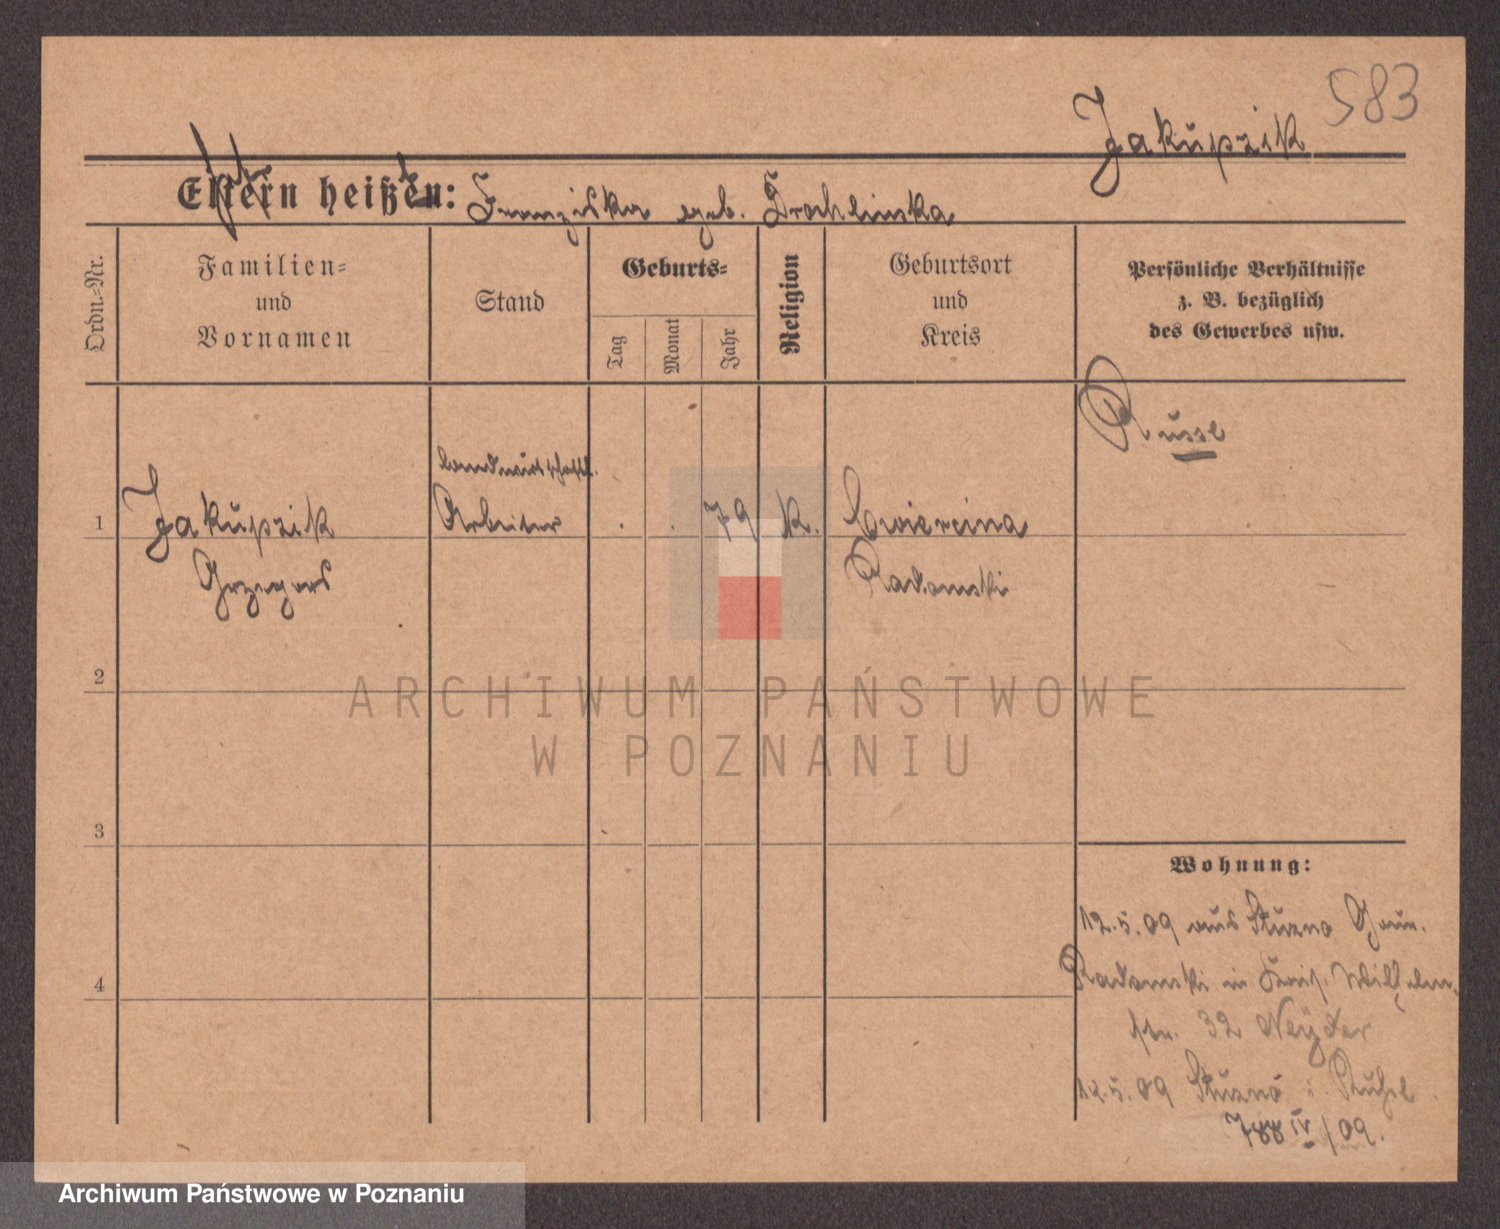 583
Jakupzik
Eltern heißen: Franziska geb. Drachlinska
Ordn.-Nr.
Familien-
und
Vornamen
Stand
Geburts-
Tag
Monat
Jahr
Religion
Geburtsort
und
Kreis
Persönliche Verhältnisse
z. B. bezüglich
des Gewerbes usw.
Russe
landwirtschaftl.
1 Jakupzik Arbeiter . . 79 K. Cwiercina
Grzegors Radomski
2
ARCHIWUM PAŃSTWOWE
W POZNANIU
3
4
Wohnung:
12.5.09 aus Gouv.
Radomski in Wilhelm-
str. 32
12.5.09
788 IV/09.
Archiwum Państwowe w Poznaniu